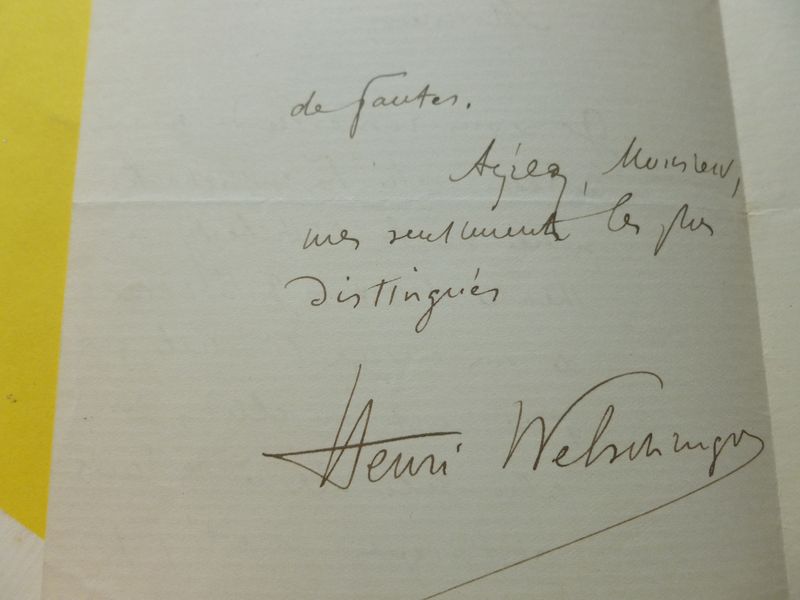 de fautes.
Agréez, Monsieur,
mes sentiments les plus
distingués
Henri Welschinger